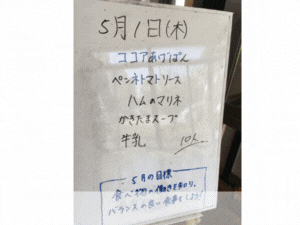 5月1日(木)
ココアあげぱん
ペンネトマトソース
ハムのマリネ
かきたまスープ
牛乳
5月の目標
食べ物の働きを知り、
バランスの良い食事をしよう!